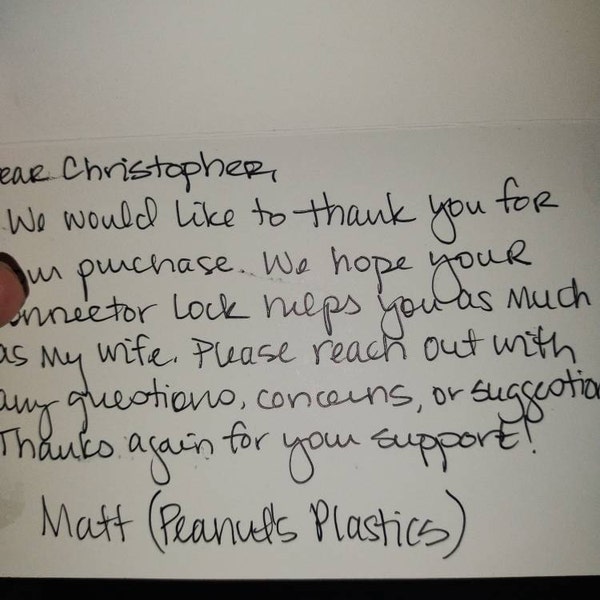 ear Christopher,
We would like to thank you for
ur purchase. We hope your
onnector Lock helps you as much
as my wife. Please reach out with
any questions, concerns, or suggestion
Thanks again for your support!
Matt (Peanut's Plastics)